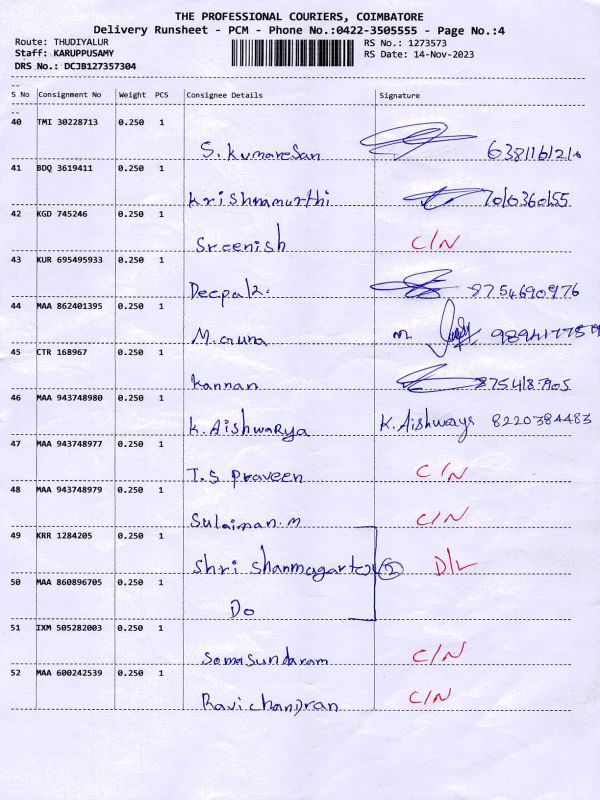 THE PROFESSIONAL COURIERS, COIMBATORE
Delivery Runsheet - PCM - Phone No.:0422-3505555 - Page No.:4
Route: THUDIYALUR RS No.: 1273573
Staff: KARUPPUSAMY RS Date: 14-Nov-2023
DRS No.: DCJB127357304
S No Consignment No Weight PCS Consignee Details Signature
40 TMI 30228713 0.250 1
S. Kumaresan
41 BDQ 3619411 0.250 1
Krishnamurthi 7010360155
42 KGD 745246 0.250 1
Sreenish C/N
43 KUR 695495933 0.250 1
Deepak. 8754690976
44 MAA 862401395 0.250 1
M. aruna
45 CTR 168967 0.250 1
Kannan
46 MAA 943748980 0.250 1
K. Aishwarya K. Aishwarya 8220384483
47 MAA 943748977 0.250 1
T.S Praveen C/N
48 MAA 943748979 0.250 1
Sulaiman. M C/N
49 KRR 1284205 0.250 1
Shri 2 D/L
50 MAA 860896705 0.250 1
Do
51 IXM 505282003 0.250 1
Somasundaram C/N
52 MAA 600242539 0.250 1
Ravichandran C/N